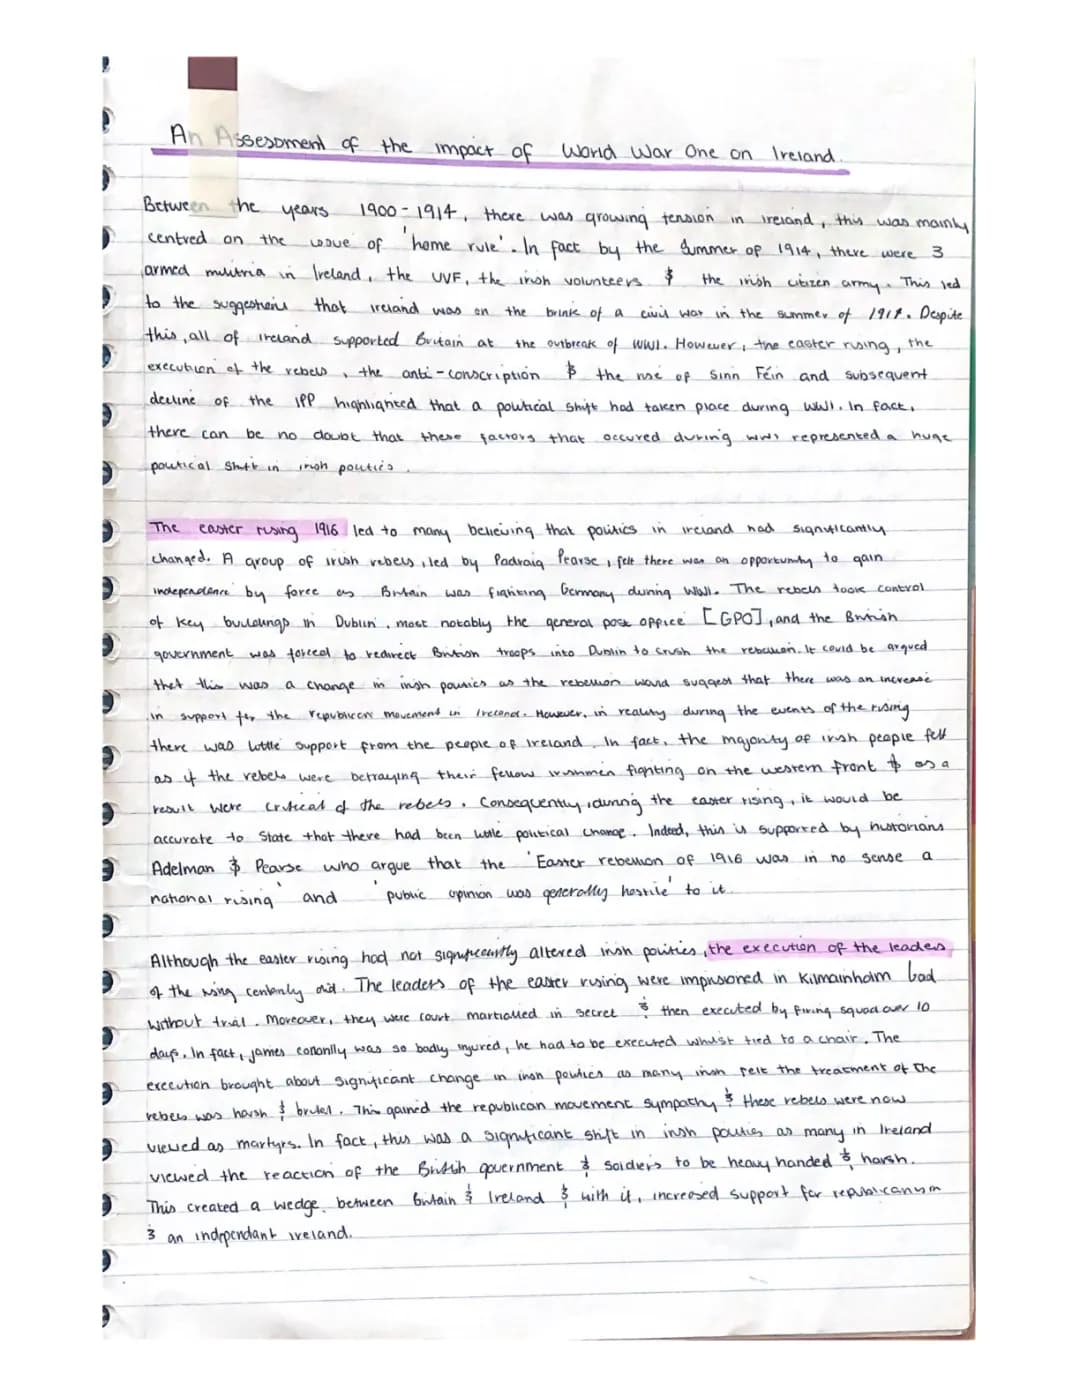 An Assessment of the impact of World War One on Ireland.
Between the years 1900-1914, there was growing tension in ireland, this was mainly
centred on the issue of 'home rule'. In fact by the summer of 1914, there were 3
armed militria in Ireland, the UVF, the irish volunteers & the irish citizen army. This led
to the suggestions that ireland was on the brink of a civil war in the summer of 1914. Despite
this, all of ireland supported Britain at the outbreak of WW1. However, the easter rising, the
execution of the rebels, the anti-conscription & the rise of Sinn Féin and subsequent
decline of the IPP highlighted that a political shift had taken place during WW1. In fact,
there can be no doubt that these factors that occured during WW1 represented a huge
political shift in irish politics.
The easter rising 1916 led to many believing that politics in ireland had significantly
changed. A group of irish rebels, led by Padraig Pearse, felt there was an opportunity to gain
independence by force as Britain was fighting Germany during WW1. The rebels took control
of key buildings in Dublin, most notably the general post office [GPO], and the British
government was forced to redirect British troops into Dublin to crush the rebellion. It could be argued
that this was a change in irish politics as the rebellion would suggest that there was an increase
in support for the republican movement in Ireland. However, in reality during the events of the rising
there was little support from the people of ireland. In fact, the majority of irish people felt
as if the rebels were betraying their fellow irishmen fighting on the western front & as a
result were critical of the rebels. Consequently, during the easter rising, it would be
accurate to state that there had been little political change. Indeed, this is supported by historians
Adelman & Pearse who argue that the 'Easter rebellion of 1916 was in no sense a
national rising' and 'public opinion was generally hostile' to it.
Although the easter rising had not significantly altered irish politics, the execution of the leaders
of the rising certainly did. The leaders of the easter rising were imprisoned in Kilmainham Goal
without trial. Moreover, they were court martialled in secret & then executed by firing squad over 10
days. In fact, james connolly was so badly injured, he had to be executed whilst tied to a chair. The
execution brought about significant change in irish politics as many irish felt the treatment of the
rebels was harsh & brutal. This gained the republican movement sympathy & these rebels were now
viewed as martyrs. In fact, this was a significant shift in irish politics as many in Ireland
viewed the reaction of the British government & soldiers to be heavy handed & harsh.
This created a wedge between Britain & Ireland & with it, increased support for republicanism
& an independant ireland.